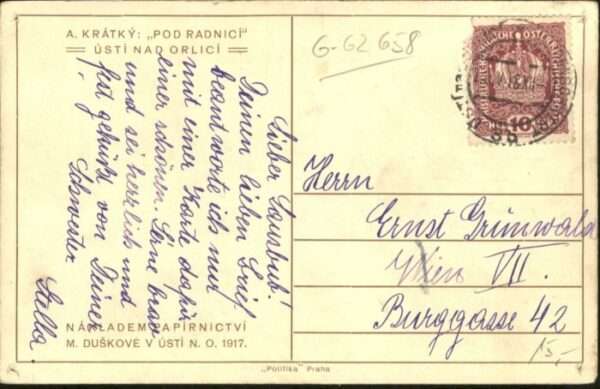 A. KRÁTKÝ: „POD RADNICÍ"
ÚSTÍ NAD ORLICÍ
G-62 658
Lieber Lausbub!
Deinen lieben Brief
beantworte ich nur
mit einer Karte dafür
einer schönen. Lerne brav
und sei herzlich und
fest geküßt von Deiner
Schwester
Stella
Herrn
Ernst Grünwald
Wien VII.
Burggasse 42
15,-
NÁKLADEM PAPÍRNICTVÍ
M. DUŠKOVÉ V ÚSTÍ N. O. 1917.
„Politika" Praha
10